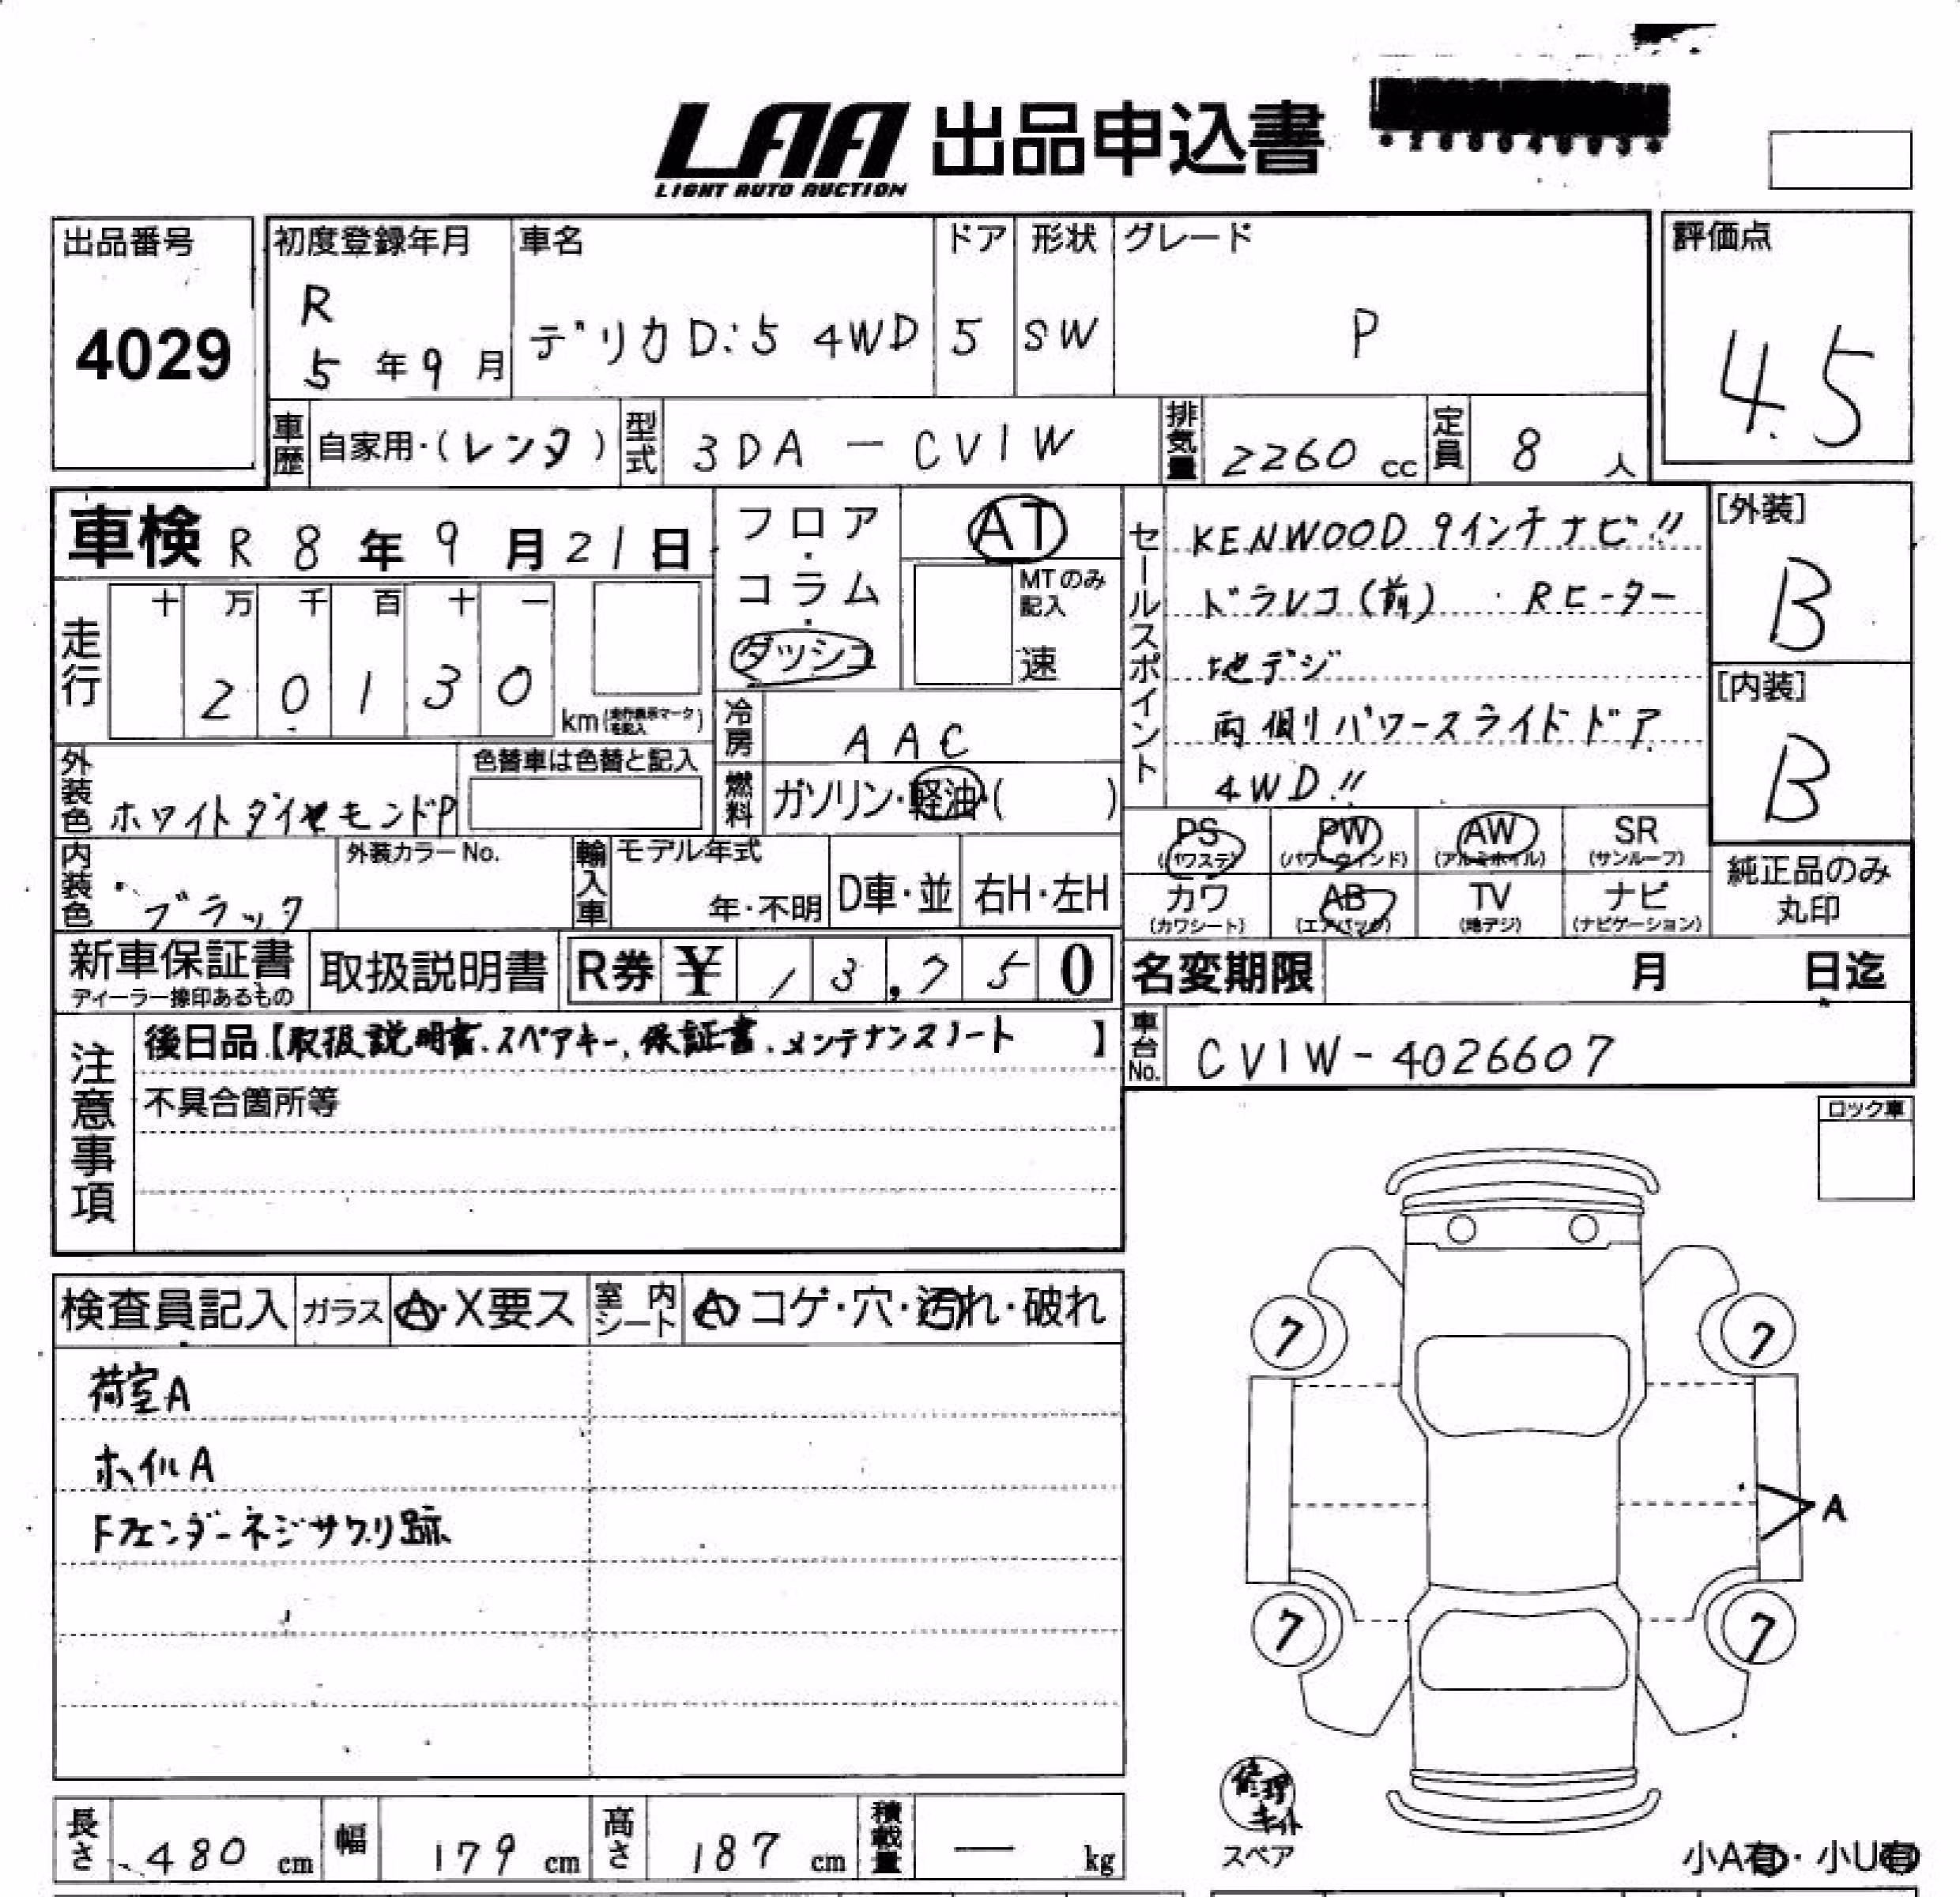 LAA 出品申込書
LIGHT AUTO AUCTION
出品番号
4029
初度登録年月
R
5 年 9 月
車名
デリカD:5 4WD
ドア
5
形状
SW
グレード
P
評価点
4.5
車歴
自家用・(レンタ)
型式
3DA - CV1W
排気量
2260 cc
定員
8 人
車検 R 8 年 9 月 21 日
フロア・コラム・ダッシュ
AT
MTのみ記入
速
セールスポイント
KENWOOD 9インチナビ!!
ドラレコ(前) ・Rヒーター
地デジ
両側パワースライドドア
4WD!!
[外装]
B
[内装]
B
走行
十 万 千 百 十 一
2 0 1 3 0
km(走行表示マークを記入)
冷房
AAC
燃料
ガソリン・軽油・( )
外装色
ホワイトダイヤモンドP
色替車は色替と記入
内装色
ブラック
外装カラーNo.
輸入車
モデル年式
年・不明
D車・並
右H・左H
PS
(パワステ)
PW
(パワーウィンド)
AW
(アルミホイル)
SR
(サンルーフ)
カワ
(カワシート)
AB
(エアバック)
TV
(地デジ)
ナビ
(ナビゲーション)
純正品のみ
丸印
新車保証書
ディーラー捺印あるもの
取扱説明書
R券 ¥ 13,750
名変期限 月 日迄
注意事項
後日品【取扱説明書、スペアキー、保証書、メンテナンスノート】
不具合箇所等
車台No.
CV1W-4026607
ロック車
検査員記入
ガラス
A・X要ス
室内シート
A コゲ・穴・汚れ・破れ
荷室A
ホイルA
Fフェンダーネジサワリ跡
7
7
A
7
7
修理キット
スペア
小A有・小U有
長さ
480 cm
幅
179 cm
高さ
187 cm
積載量
— kg